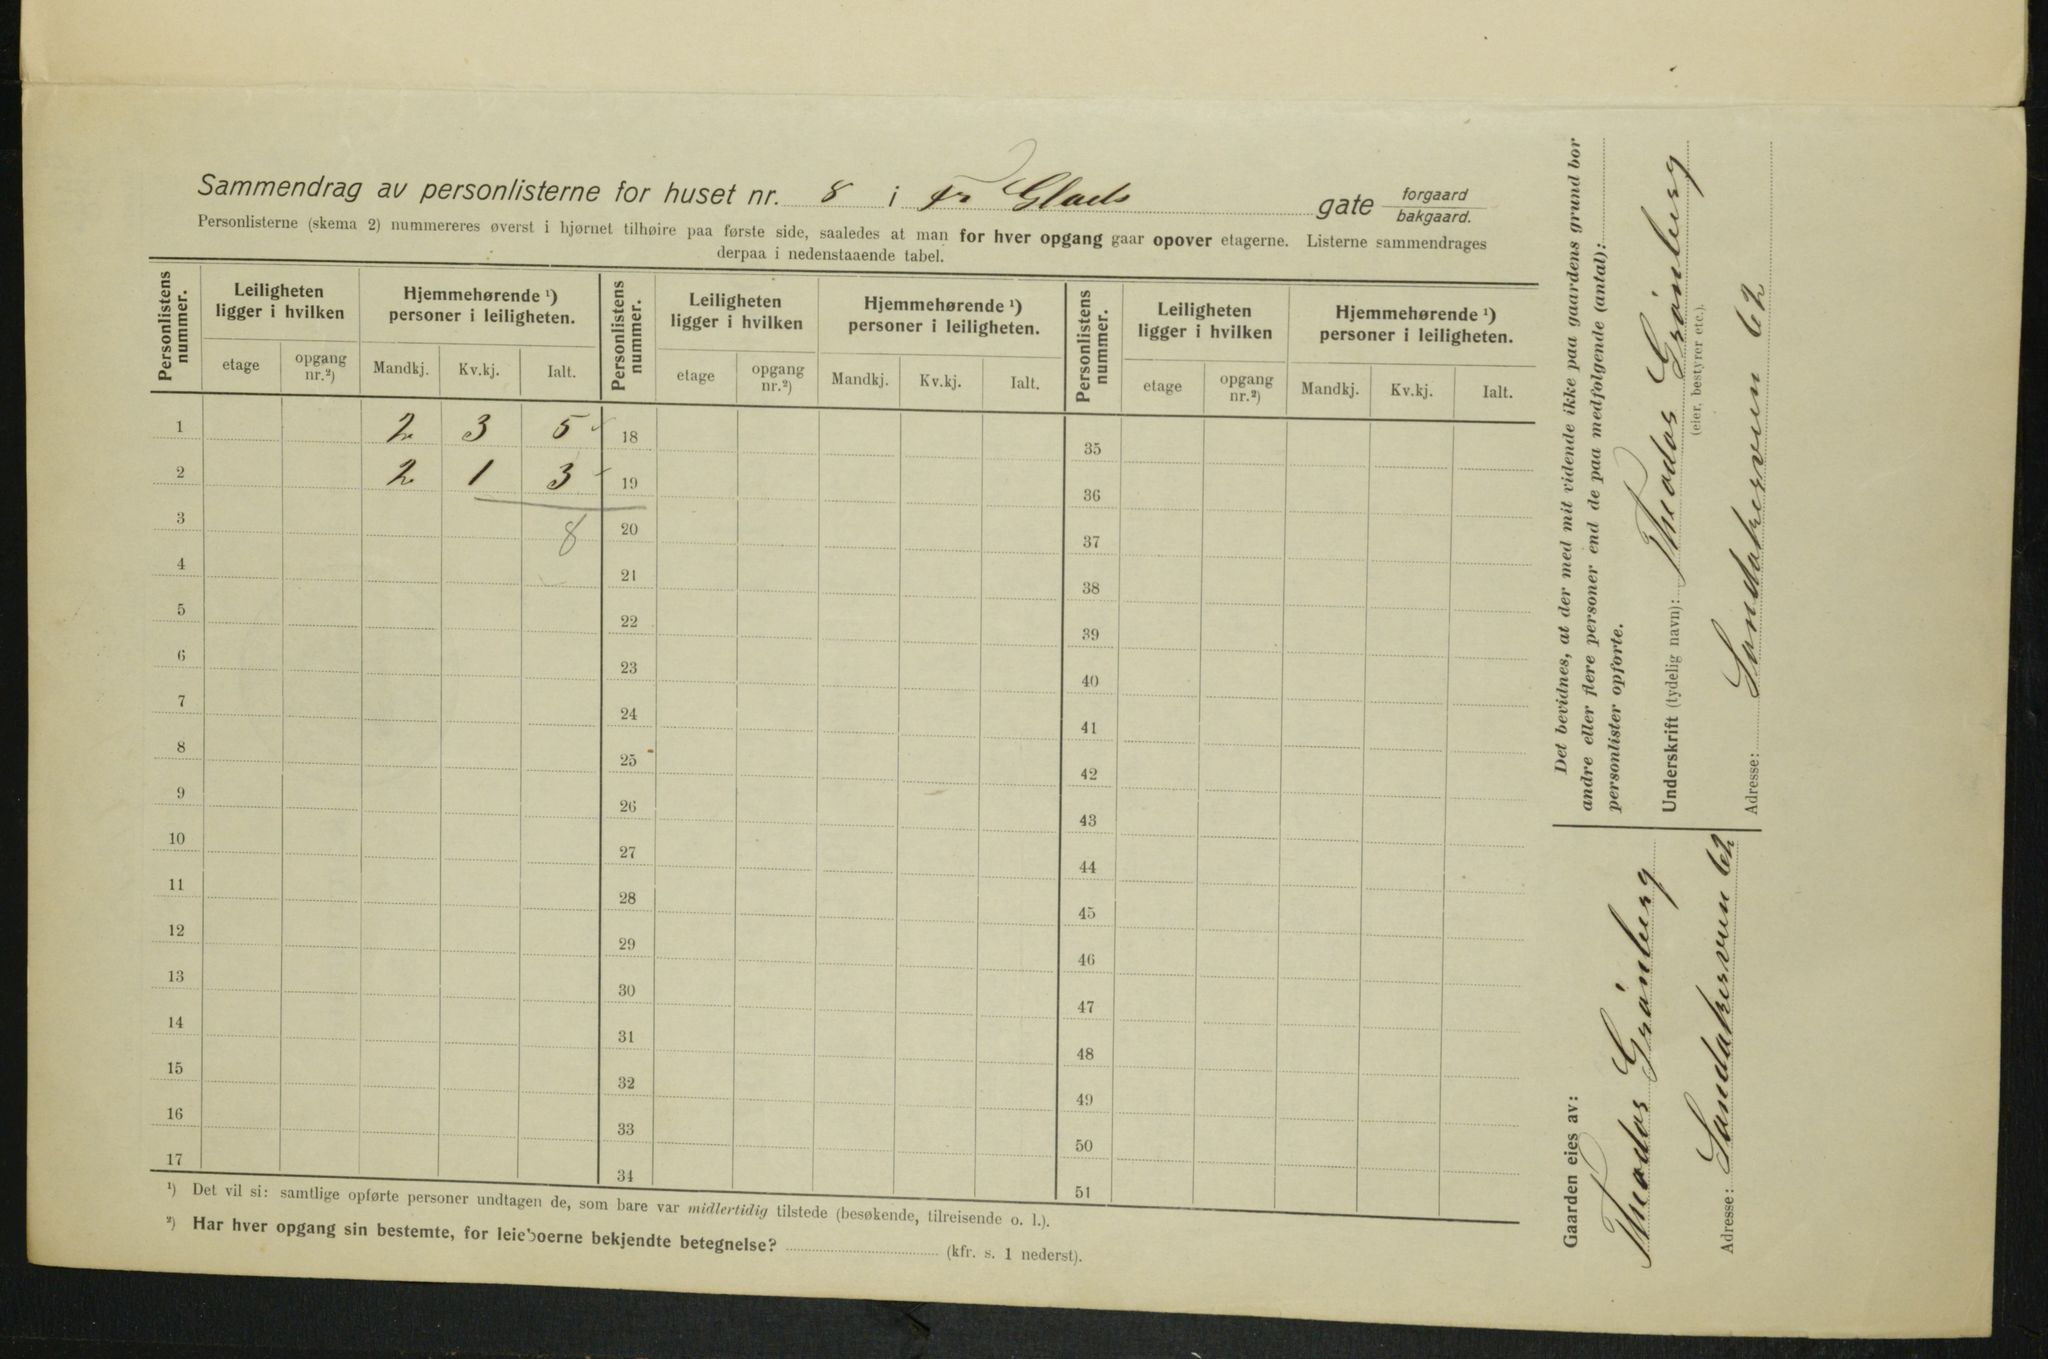 Sammendrag av personlisterne for huset nr. 8 i Fr Glads gate forgaard bakgaard.
Personlisterne (skema 2) nummereres øverst i hjørnet tilhøire paa første side, saaledes at man for hver opgang gaar opover etagerne. Listerne sammendrages
derpaa i nedenstaaende tabel.
Personlistens nummer. Leiligheten ligger i hvilken Hjemmehørende ¹) personer i leiligheten. Personlistens nummer. Leiligheten ligger i hvilken Hjemmehørende ¹) personer i leiligheten. Personlistens nummer. Leiligheten ligger i hvilken Hjemmehørende ¹) personer i leiligheten.
etage opgang nr.²) Mandkj. Kv.kj. Ialt. etage opgang nr.²) Mandkj. Kv.kj. Ialt. etage opgang nr.²) Mandkj. Kv.kj. Ialt.
1 2 3 5 18 35
2 2 1 3 19 36
3 8 20 37
4 21 38
5 22 39
6 23 40
7 24 41
8 25 42
9 26 43
10 27 44
11 28 45
12 29 46
13 30 47
14 31 48
15 32 49
16 33 50
17 34 51
¹) Det vil si: samtlige opførte personer undtagen de, som bare var midlertidig tilstede (besøkende, tilreisende o. l.).
²) Har hver opgang sin bestemte, for leieboerne bekjendte betegnelse? (kfr. s. 1 nederst).
Det bevidnes, at der med mit vidende ikke paa gaardens grund bor
andre eller flere personer end de paa medfolgende (antal):
personlister opforte.
Underskrift (tydelig navn): Theodor Grønberg
(eier, bestyrer etc.).
Adresse: Sandakerveien 62
Gaarden eies av:
Theodor Grønberg
Adresse: Sandakerveien 62